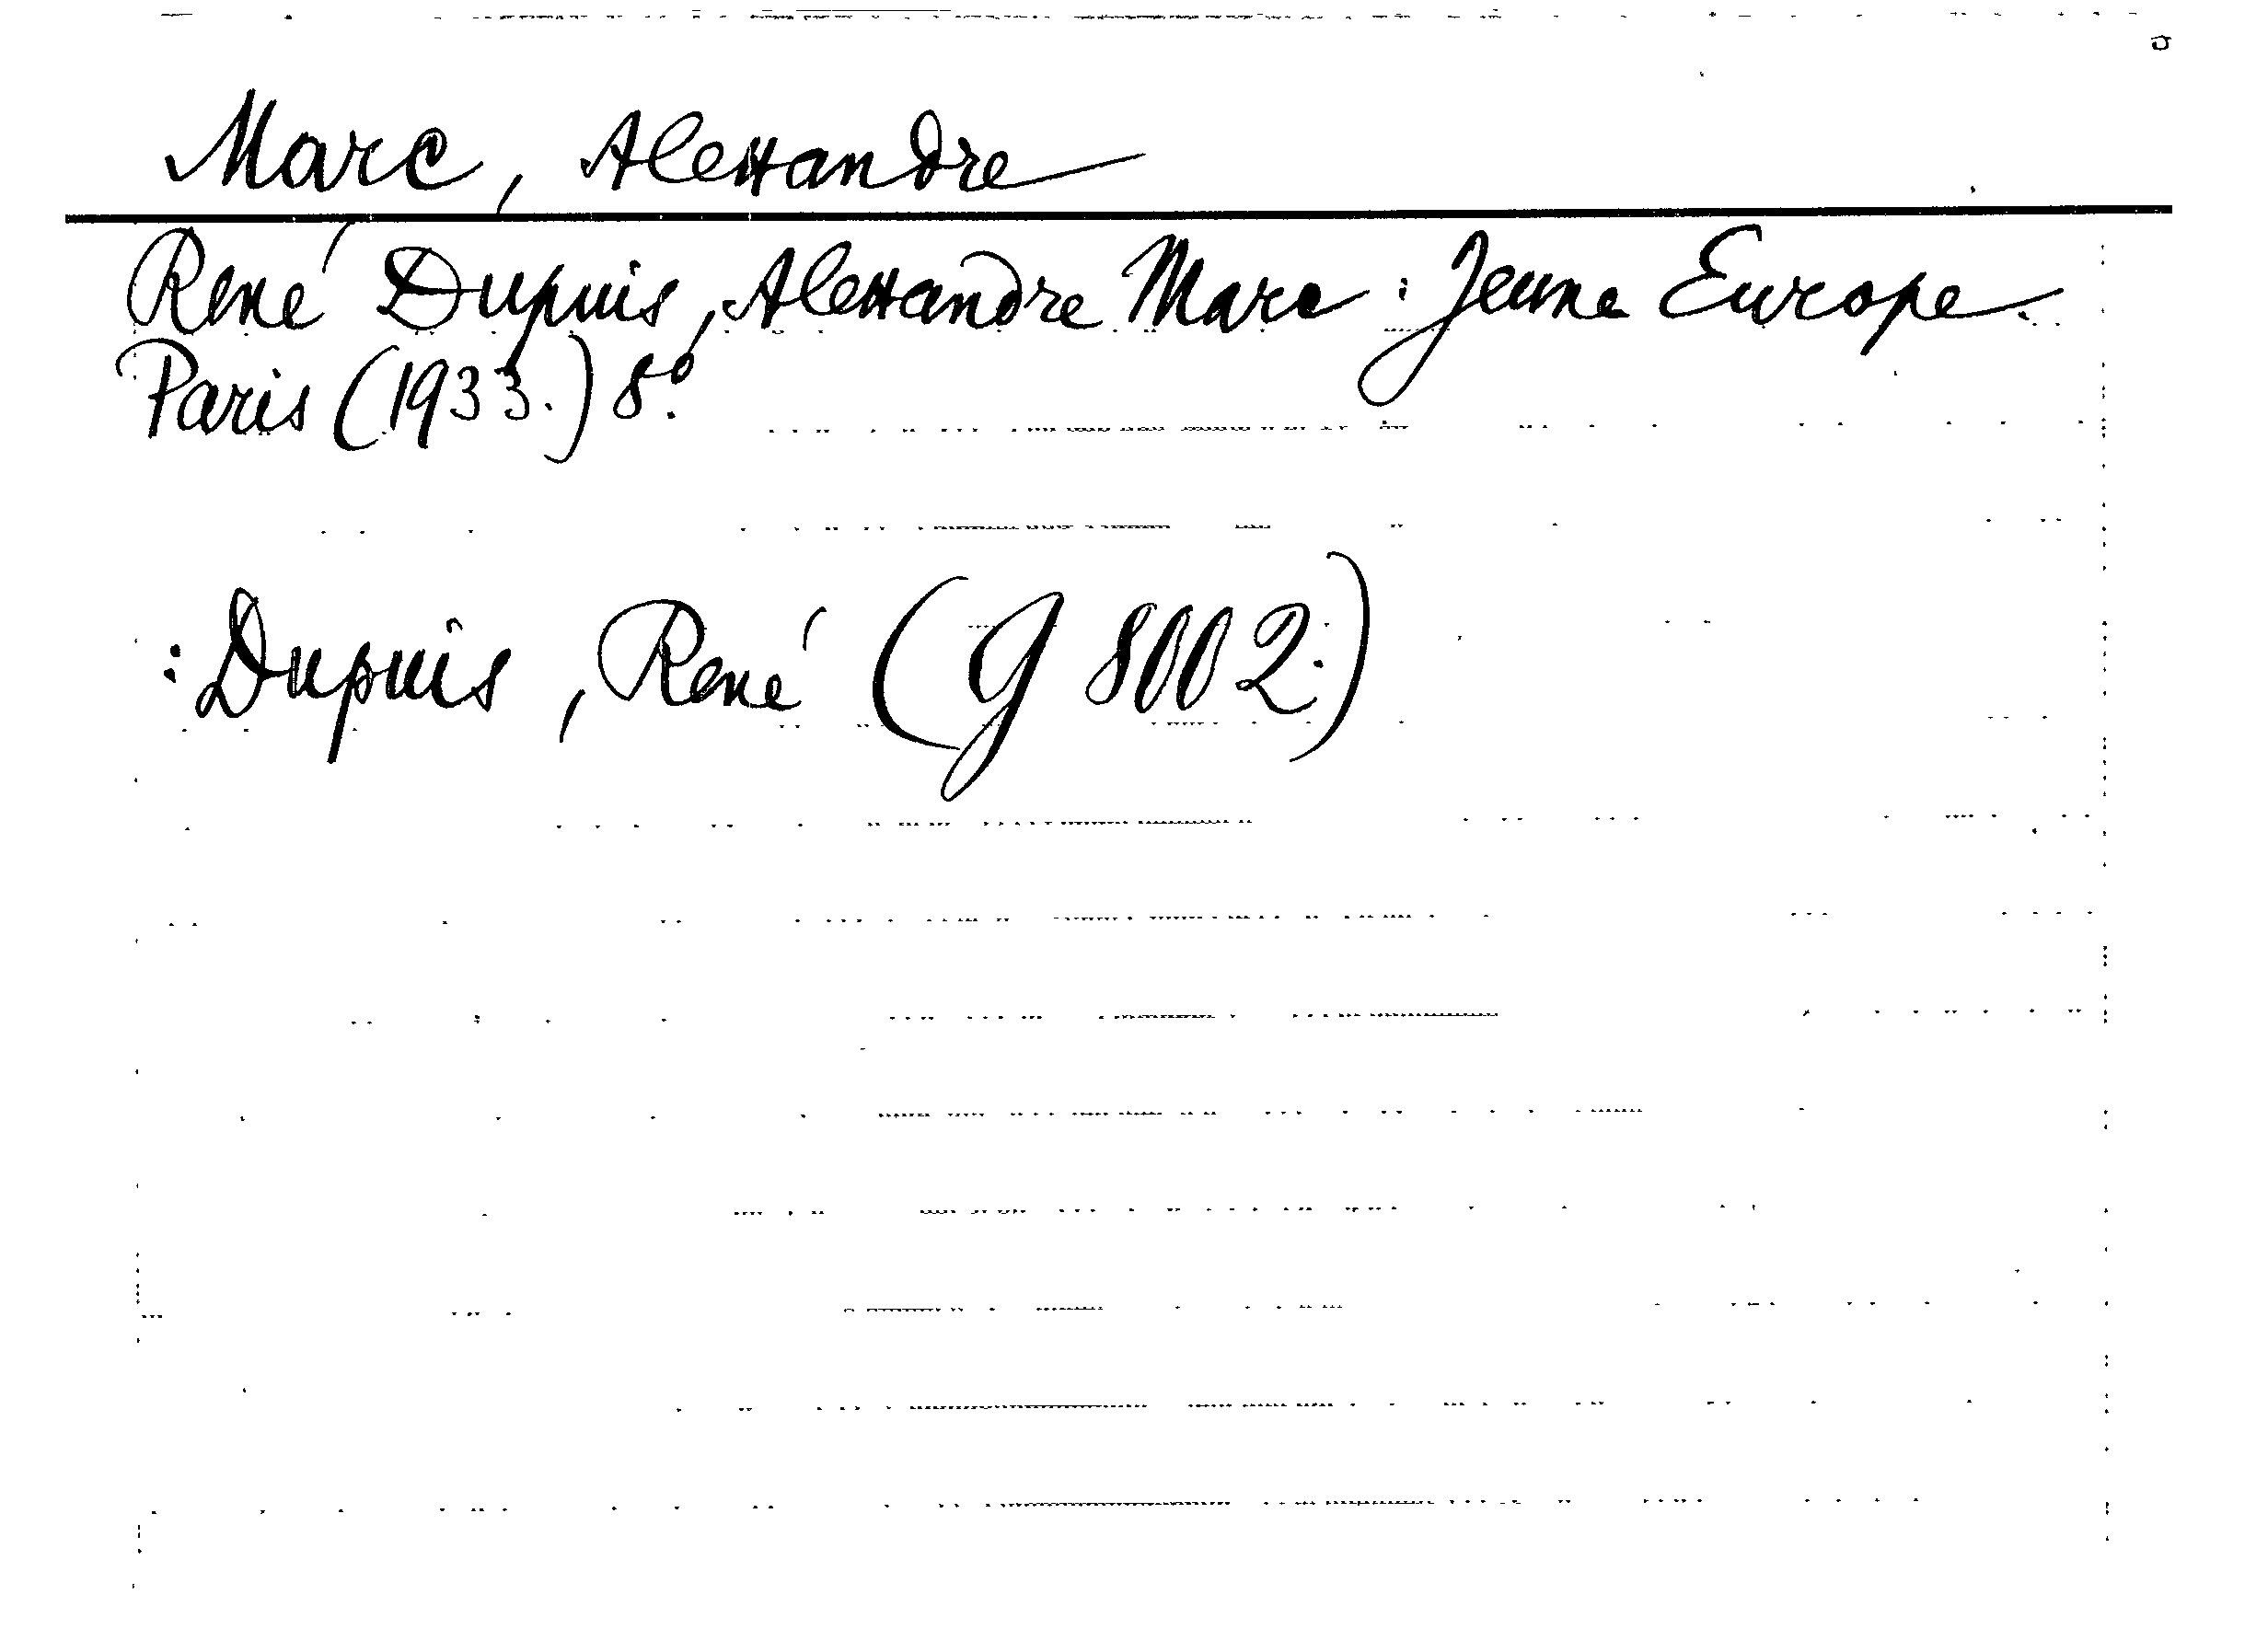 Marc, Alexandre
René Dupuis, Alexandre Marc: Jeune Europe.
Paris (1933.) 8º.
: Dupuis, René (G 8002.)